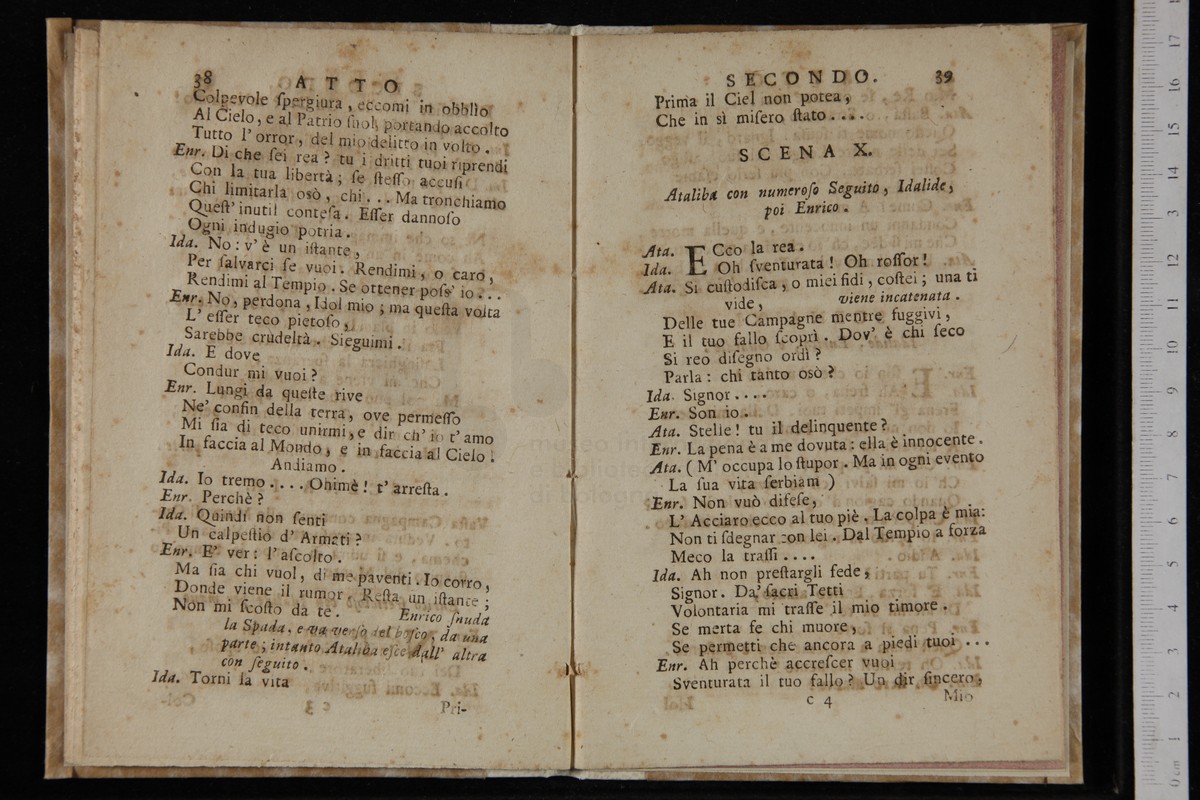 38 ATTO
Colpevole ſpergiura, eccomi in obblìo
Al Cielo, e al Patrio ſuol, portando accolto
Tutto l'orror, del mio delitto in volto.
Enr. Di che ſei rea? tu i dritti tuoi riprendi
Con la tua libertà; ſe ſteſſo accuſi
Chi limitarla osò, chi... Ma tronchiamo
Queſt' inutil conteſa. Eſſer dannoſo
Ogni indugio potria.
Ida. No: v'è un iſtante,
Per ſalvarci ſe vuoi. Rendimi, o caro,
Rendimi al Tempio. Se ottener poſs' io...
Enr. No, perdona, Idol mio; ma queſta volta
L' eſſer teco pietoſo,
Sarebbe crudeltà. Sieguimi.
Ida. E dove
Condur mi vuoi?
Enr. Lungi da queſte rive
Ne' confin della terra, ove permeſſo
Mi ſia di teco unirmi, e dir ch' io t' amo
In faccia al Mondo, e in faccia al Cielo!
Andiamo.
Ida. Io tremo.... Ohimè! t' arreſta.
Enr. Perchè?
Ida. Quindi non ſenti
Un calpeſtio d' Armati?
Enr. E' ver: l' aſcolto.
Ma ſia chi vuol, di me paventi. Io corro,
Donde viene il rumor. Reſta un iſtante;
Non mi ſcoſto da te. Enrico ſnuda
la Spada, e va verſo del boſco, da una
parte; intanto Ataliba eſce dall' altra
con ſeguito.
Ida. Torni la vita
c 3 Pri-
SECONDO. 39
Prima il Ciel non potea,
Che in sì miſero ſtato....
SCENA X.
Ataliba con numeroſo Seguito, Idalide,
poi Enrico.
Ata. ECco la rea.
Ida. Oh ſventurata! Oh roſſor!
Ata. Si cuſtodiſca, o miei fidi, coſtei; una ti
vide, viene incatenata.
Delle tue Campagne mentre fuggivi,
E il tuo fallo ſcoprì. Dov' è chi ſeco
Si reo diſegno ordì?
Parla: chi tanto osò?
Ida. Signor....
Enr. Son io.
Ata. Stelle! tu il delinquente?
Enr. La pena è a me dovuta: ella è innocente.
Ata. (M' occupa lo ſtupor. Ma in ogni evento
La ſua vita ſerbiam)
Enr. Non vuò difeſe,
L' Acciaro ecco al tuo piè. La colpa è mia:
Non ti ſdegnar con lei. Dal Tempio a forza
Meco la traſſi....
Ida. Ah non preſtargli fede,
Signor. Da' ſacri Tetti
Volontaria mi traſſe il mio timore.
Se merta fe chi muore,
Se permetti che ancora a piedi tuoi...
Enr. Ah perchè accreſcer vuoi
Sventurata il tuo fallo? Un dir ſincero,
c 4 Mio